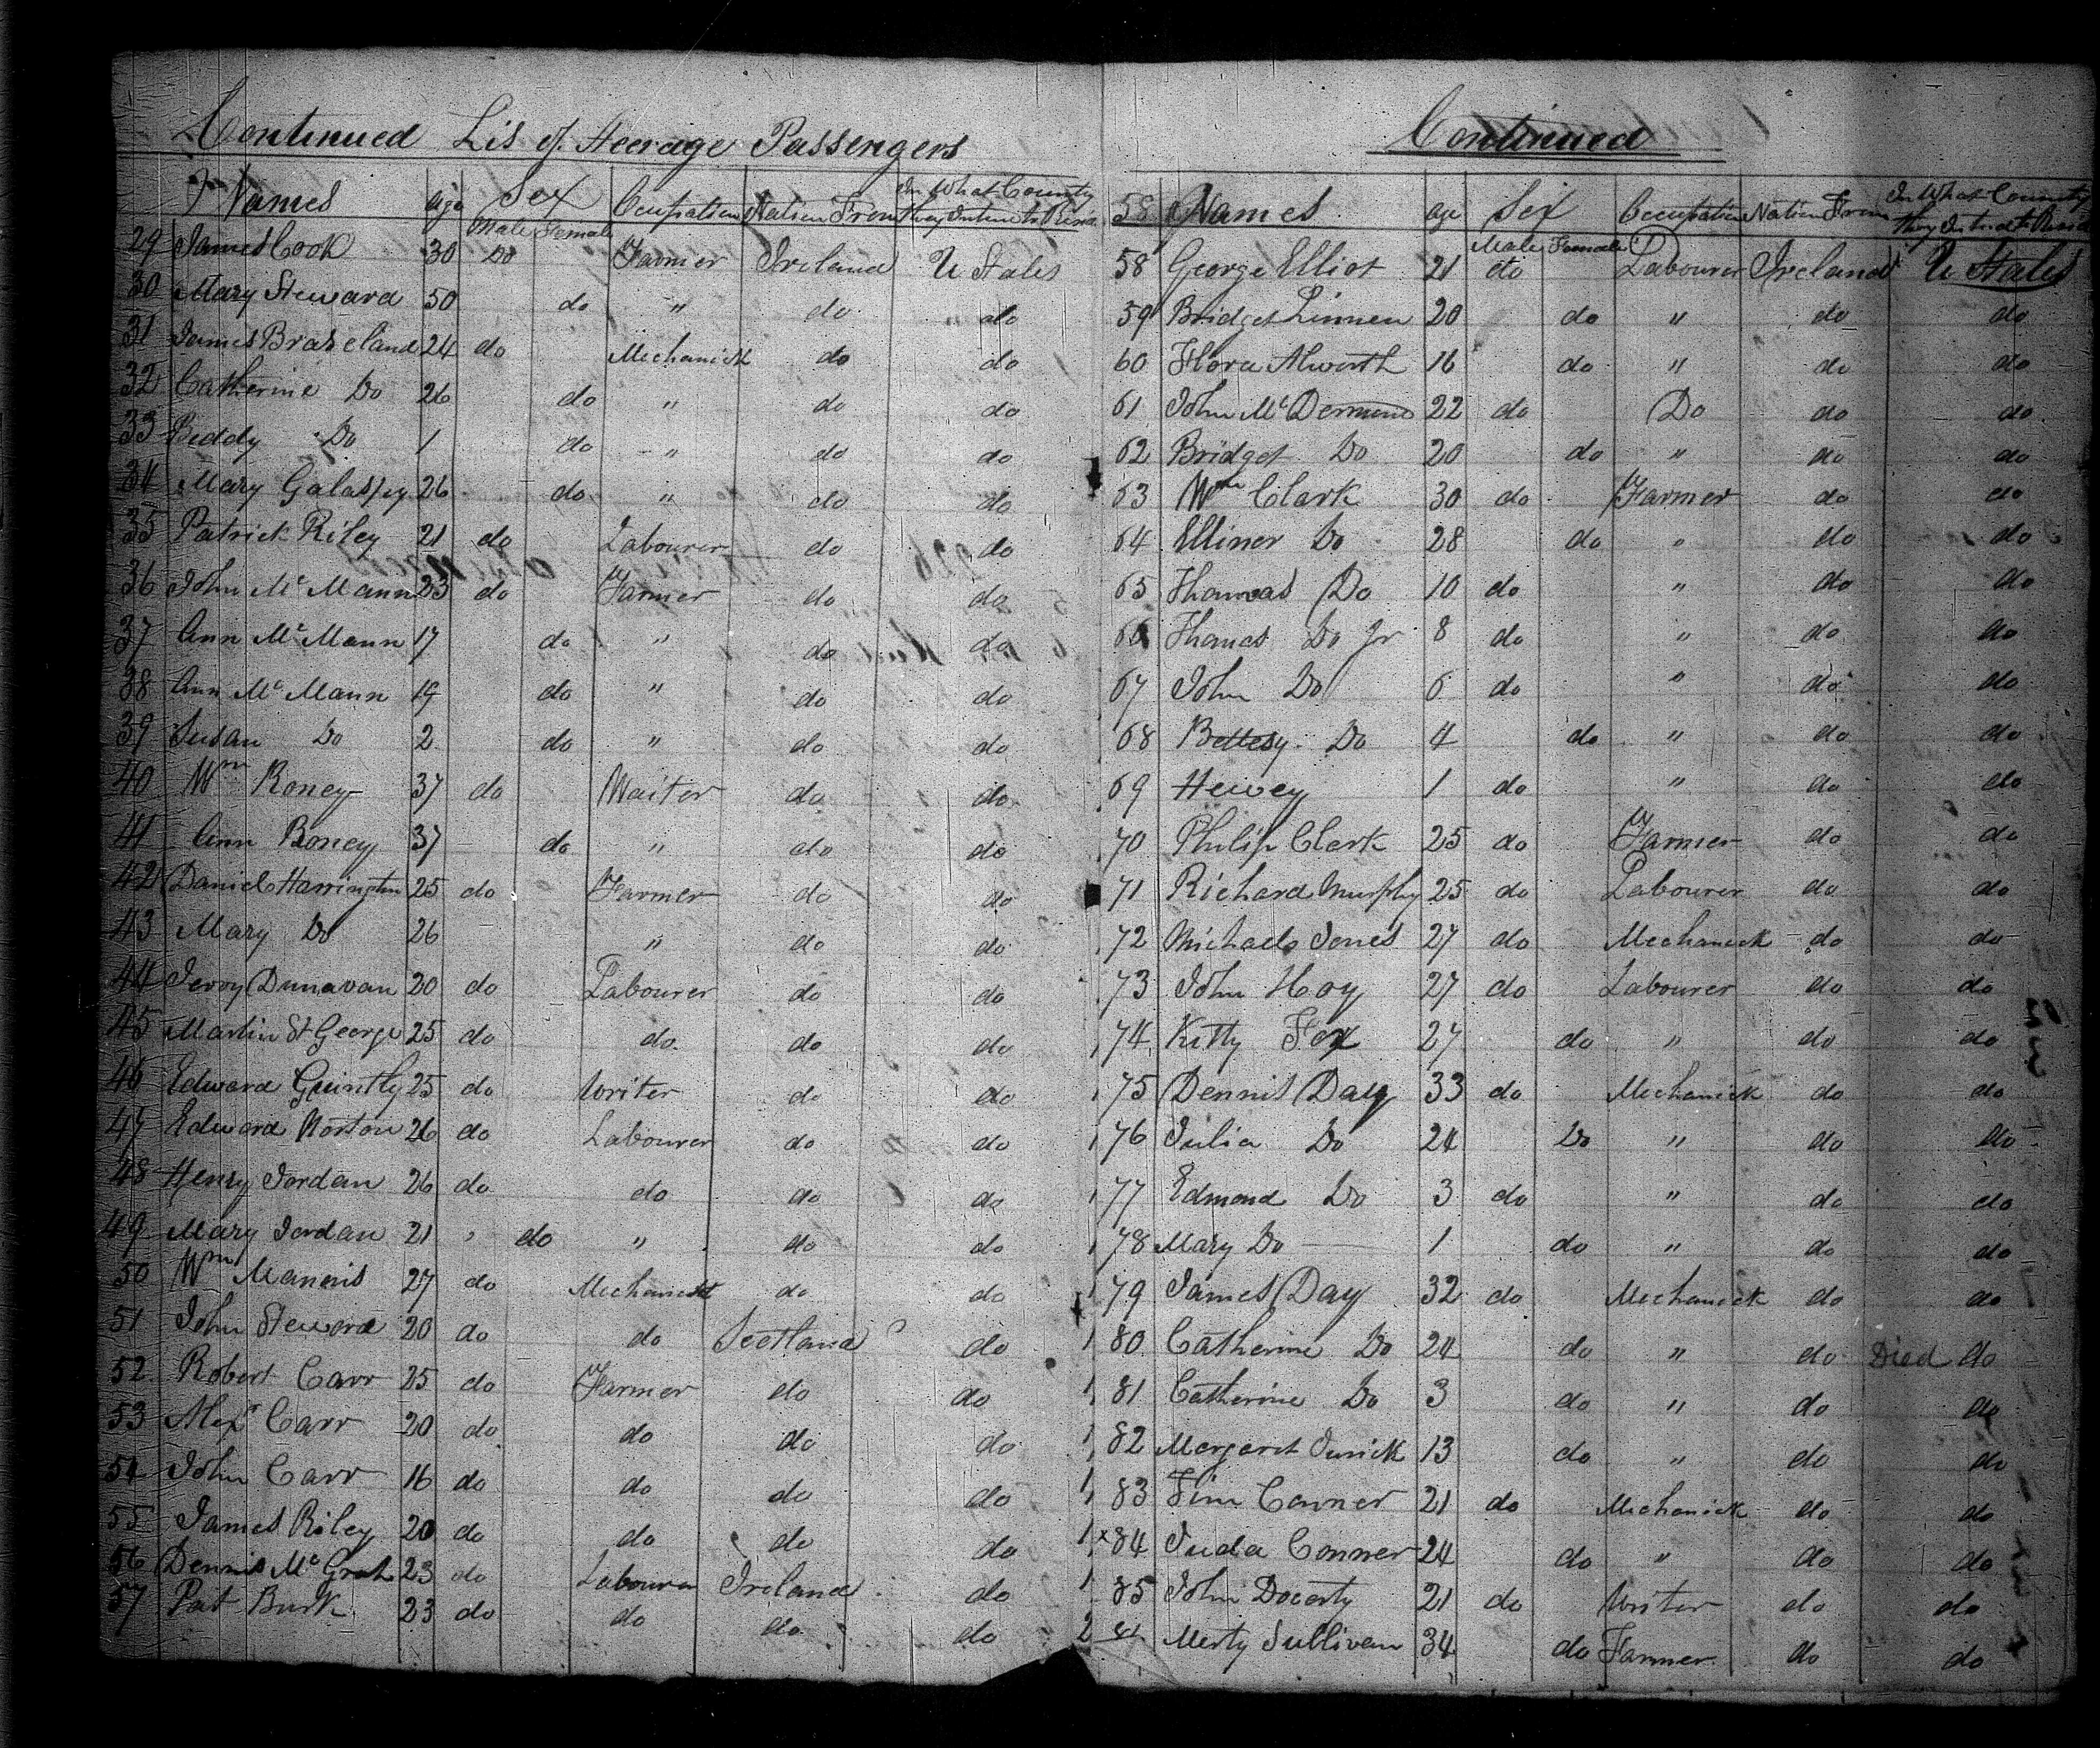 Continued Lis of Steerage Passengers
Names age Sex Occupation Nation From In What County they Intend to
Male Female
29 James Cook 30 Do Farmer Ireland U States
30 Mary Steward 50 do " do " do
31 James Braseland 24 do Mechanick do do
32 Catherine Do 26 do " do do
33 Biddy Do 1 do " do do
34 Mary Galaspy 26 do " do do
35 Patrick Riley 21 do Labourer do do
36 John Mc Mann 23 do Farmer do do
37 Ann Mc Mann 17 do " do do
38 Ann Mc Mann 19 do " do do
39 Susan Do 2 do " do do
40 Wm Roney 37 do Waiter do do
41 Ann Roney 37 do " do do
42 Daniel Harrington 25 do Farmer do do
43 Mary Do 26 " do do
44 Jerry Dunavan 20 do Labourer do do
45 Martin St George 25 do do do do
46 Edward 25 do Writer do do
47 Edward Norton 26 do Labourer do do
48 Henry Jordan 26 do do do do
49 Mary Jordan 21 " do " do do
50 Wm Mannis 27 do Mechanick do do
51 John Steward 20 do do Scotland do
52 Robert Carr 25 do Farmer do do
53 Alexr Carr 20 do do do do
54 John Carr 16 do do do do
55 James Riley 20 do do do do
56 Dennis Mc Grah 23 do Labourer Ireland do
57 Pat Burk 23 do do do do
Continued
58 Names age Sex Occupation Nation From In What County they Intend to
Male Female
58 George Elliot 21 do Labourer Ireland U States
59 Bridget Linnen 20 do " do do
60 Flora Alworth 16 do " do do
61 John Mc Dermund 22 do Do do do
62 Bridget Do 20 do " do do
63 Wm Clark 30 do Farmer do do
64 Elliner Do 28 do " do do
65 Thomas Do 10 do " do do
66 Thomas Do Jr 8 do " do do
67 John Do 6 do " do do
68 Bettesy Do 4 do " do do
69 Hewey 1 do " do do
70 Philip Clark 25 do Farmer do do
71 Richard Murphy 25 do Labourer do do
72 Michael Jones 27 do Mechanick do do
73 John Hoy 27 do Labourer do do
74 Kitty Fox 27 do " do do
75 Dennis Day 33 do Mechanick do do
76 Julia Do 24 Do " do do
77 Edmond Do 3 do " do do
78 Mary Do 1 do " do do
79 James Day 32 do Mechanick do do
80 Catherine Do 24 do " do Died do
81 Catherine Do 3 do " do do
82 Margaret 13 do " do do
83 Tim Conner 21 do Mechanick do do
x 84 Juda Conner 24 do " do do
85 John Docerty 21 do Writer do do
Merty Sullivan 34 do Farmer do do